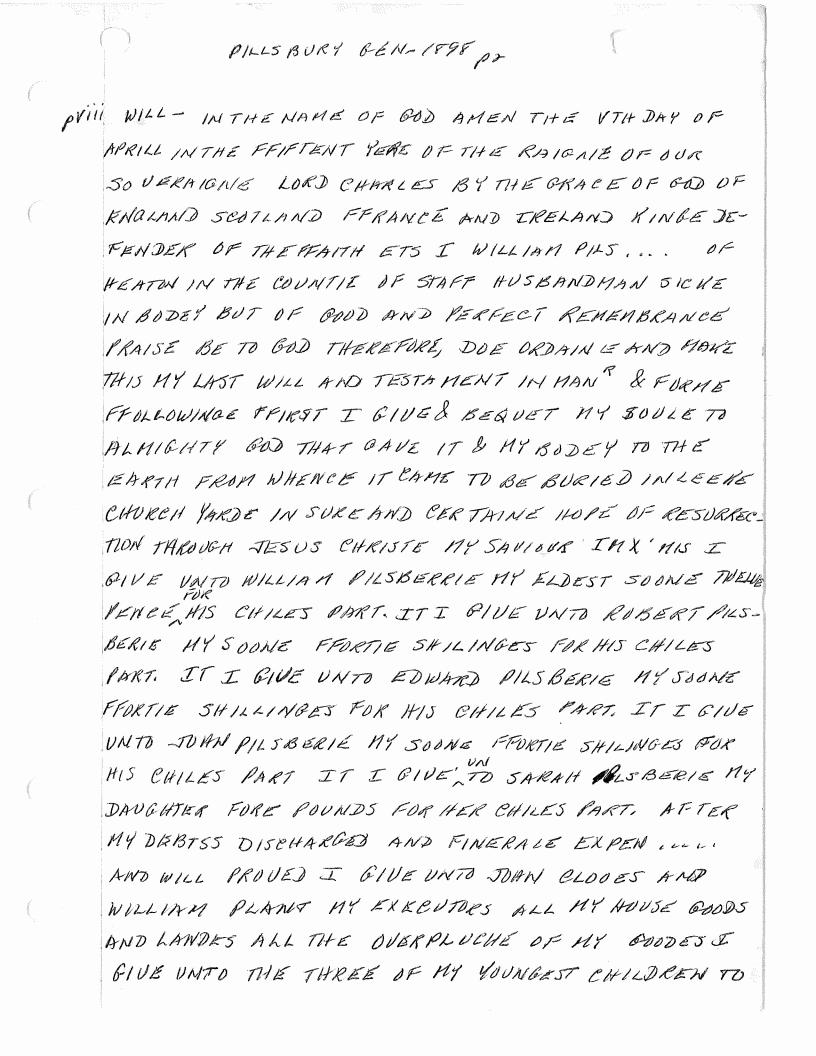 PILLSBURY GEN-1898 p2
pviii WILL - IN THE NAME OF GOD AMEN THE VTH DAY OF
APRILL IN THE FFIFTENT YERE OF THE RAIGNE OF OUR
SOVERAIGNE LORD CHARLES BY THE GRACE OF GOD OF
ENGLAND SCOTLAND FFRANCE AND IRELAND KINGE DE-
FENDER OF THE FFAITH ETS I WILLIAM PILS.... OF
HEATON IN THE COUNTIE OF STAFF HUSBANDMAN SICKE
IN BODEY BUT OF GOOD AND PERFECT REMEMBRANCE
PRAISE BE TO GOD THEREFORE, DOE ORDAINE AND MAKE
THIS MY LAST WILL AND TESTAMENT IN MANR & FORME
FFOLLOWINGE FFIRST I GIVE & BEQUET MY SOULE TO
ALMIGHTY GOD THAT GAVE IT & MY BODEY TO THE
EARTH FROM WHENCE IT CAME TO BE BURIED IN LEEKE
CHURCH YARDE IN SURE AND CERTAINE HOPE OF RESURREC-
TION THROUGH JESUS CHRISTE MY SAVIOUR IMX'MIS I
GIVE UNTO WILLIAM PILSBERRIE MY ELDEST SOONE TWELVE
PENCE FOR HIS CHILES PART. IT I GIVE UNTO ROBERT PILS-
BERIE MY SOONE FFORTIE SHILINGES FOR HIS CHILES
PART. IT I GIVE UNTO EDWARD PILSBERIE MY SOONE
FFORTIE SHILLINGES FOR HIS CHILES PART. IT I GIVE
UNTO JOHN PILSBERIE MY SOONE FFORTIE SHILINGES FOR
HIS CHILES PART IT I GIVE UNTO SARAH PILSBERIE MY
DAUGHTER FORE POUNDS FOR HER CHILES PART. AFTER
MY DEBTSS DISCHARGED AND FINERALE EXPEN.....
AND WILL PROVED I GIVE UNTO JOHN CLOOES AND
WILLIAM PLANT MY EXECUTORS ALL MY HOUSE GOODS
AND LANDES ALL THE OVERPLUCHE OF MY GOODES I
GIVE UNTO THE THREE OF MY YOUNGEST CHILDREN TO